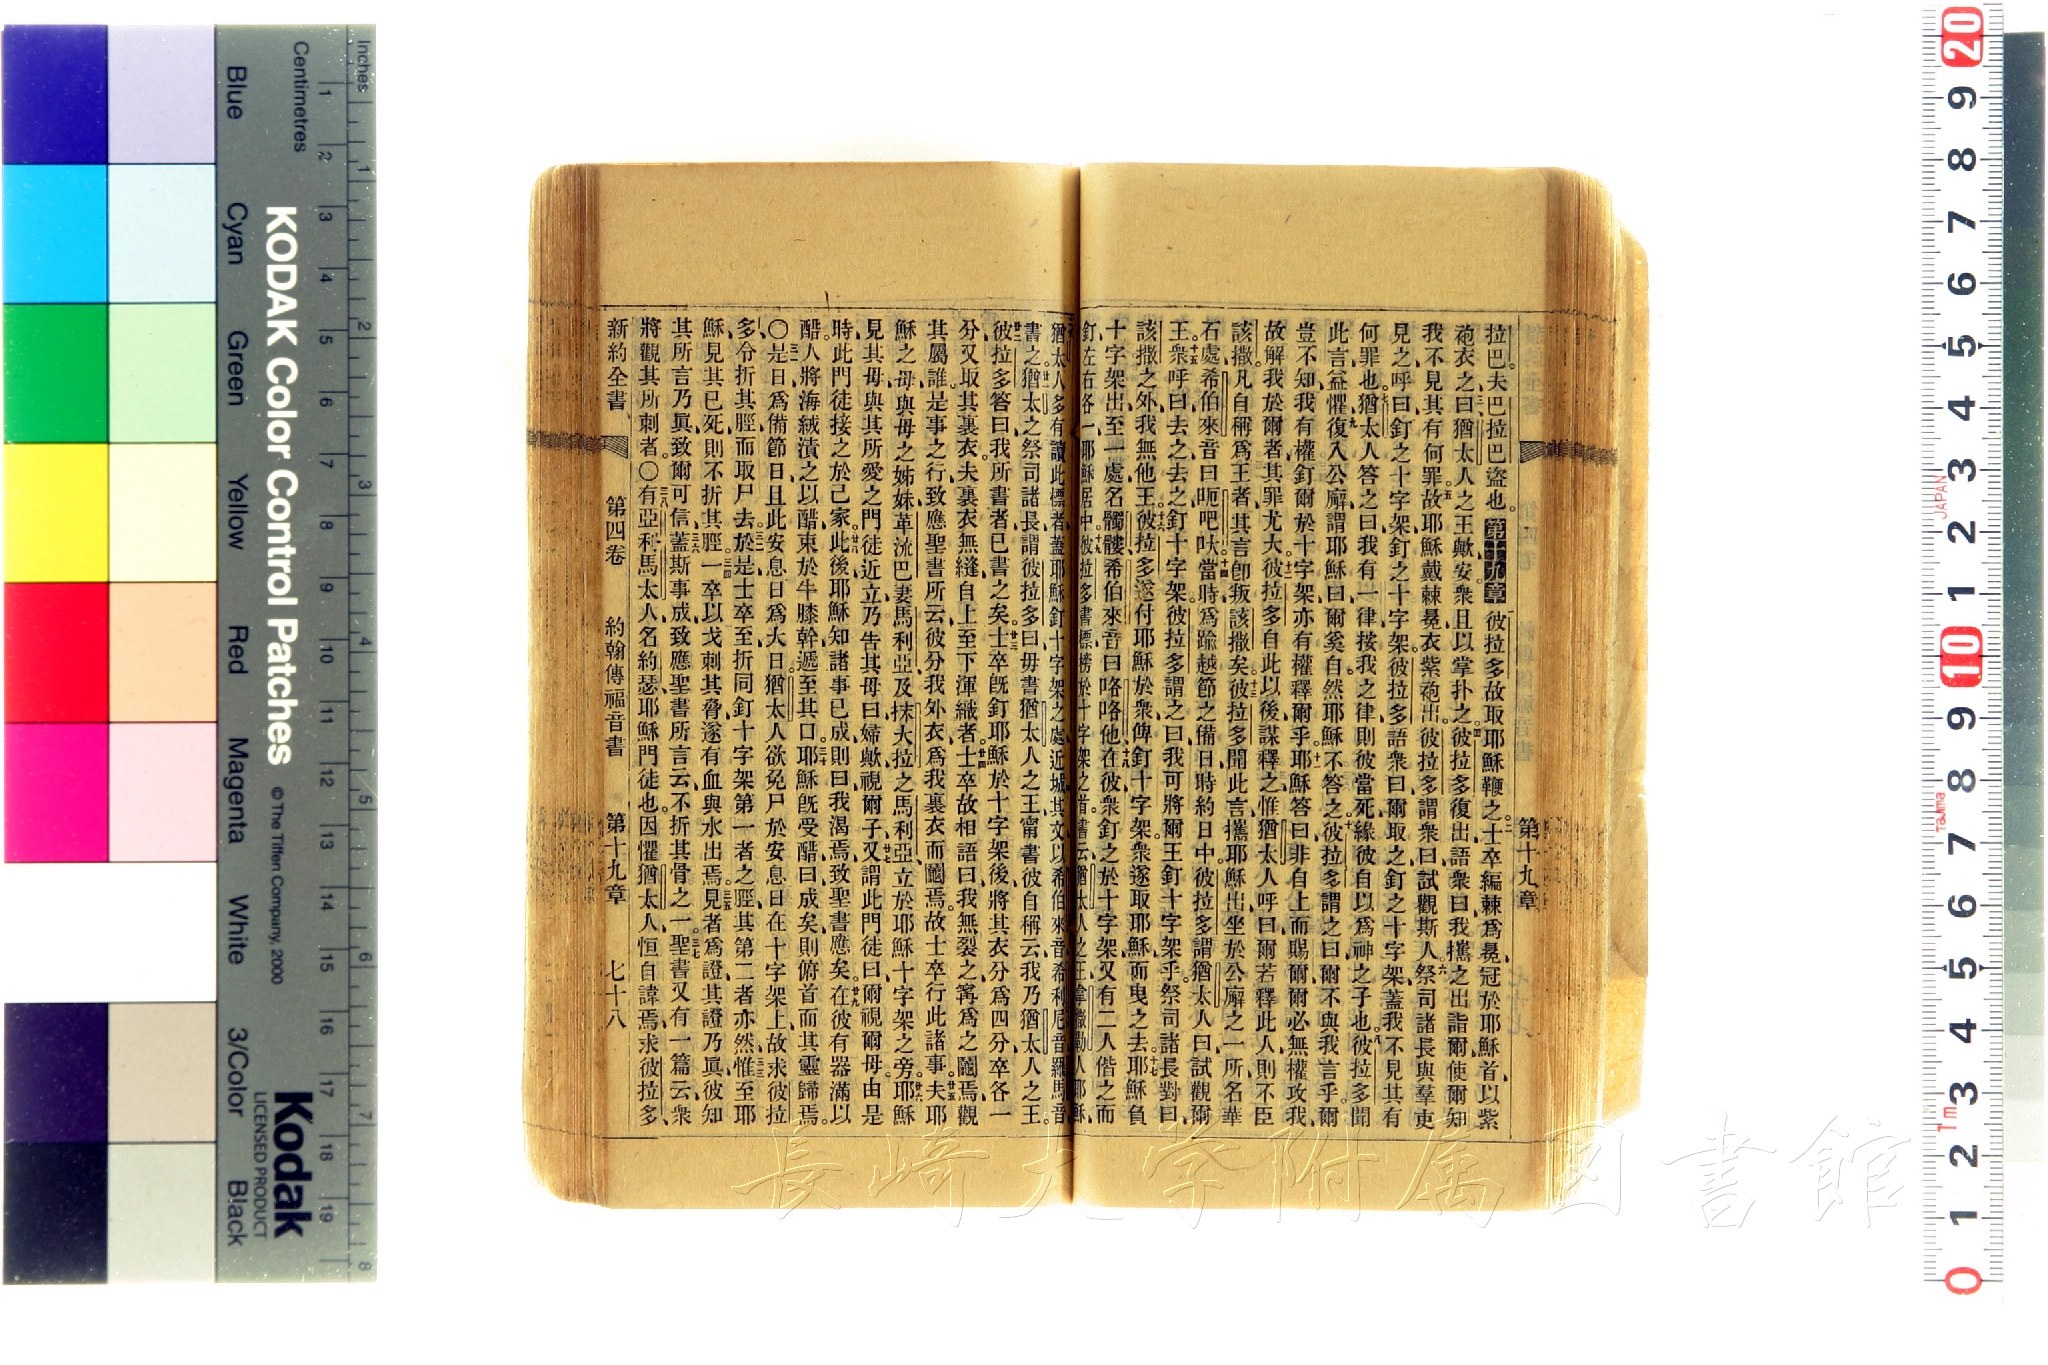 第十九章
拉巴夫巴拉巴盜也。第十九章 彼拉多故取耶穌鞭之。士卒編棘爲冕冠於耶穌首以紫
袍衣之曰猶太人之王歟安衆且以掌扑之。彼拉多復出語衆曰我攜之出詣爾使爾知
我不見其有何罪。故耶穌戴棘冕衣紫袍出。彼拉多謂衆曰試觀斯人。祭司諸長與羣吏
見之呼曰釘之十字架釘之十字架。彼拉多語衆曰爾取之釘之十字架蓋我不見其有
何罪也。猶太人答之曰我有一律按我之律則彼當死緣彼自以爲神之子也。彼拉多聞
此言益懼。復入公廨謂耶穌曰爾奚自。然耶穌不答之。彼拉多謂之曰爾不與我言乎。爾
豈不知我有權釘爾於十字架亦有權釋爾乎。耶穌答曰非自上而賜爾爾必無權攻我
故解我於爾者其罪尤大。彼拉多自此以後謀釋之惟猶太人呼曰爾若釋此人則不臣
該撒凡自稱爲王者其言卽叛該撒矣。彼拉多聞此言攜耶穌出坐於公廨之一所名華
石處希伯來音曰呃吧吠。當時爲踰越節之備日時約日中彼拉多謂猶太人曰試觀爾
王。衆呼曰去之去之釘十字架。彼拉多謂之曰我可將爾王釘十字架乎。祭司諸長對曰
該撒之外我無他王。彼拉多遂付耶穌於衆俾釘十字架。衆遂取耶穌而曳之去。耶穌負
十字架出至一處名髑髏希伯來音曰咯咯他在彼衆釘之於十字架又有二人偕之而
釘左右各一耶穌居中。彼拉多書標榜於十字架之首書云猶太人之王拿撒勒人耶穌
猶太人多有讀此標者蓋耶穌釘十字架之處近城其文以希伯來音希利尼音羅馬音
書之。猶太之祭司諸長謂彼拉多曰毋書猶太人之王甯書彼自稱云我乃猶太人之王。
彼拉多答曰我所書者已書之矣。士卒旣釘耶穌於十字架後將其衣分爲四分卒各一
分又取其裏衣。夫裏衣無縫自上至下渾織者。士卒故相語曰我無裂之寗爲之鬮焉觀
其屬誰是事之行致應聖書所云彼分我外衣爲我裏衣而鬮焉。故士卒行此諸事。夫耶
穌之母與母之姊妹革流巴妻馬利亞及抹大拉之馬利亞立於耶穌十字架之旁。耶穌
見其母與其所愛之門徒近立乃告其母曰婦歟視爾子。又謂此門徒曰爾視爾母。由是
時此門徒接之於己家。此後耶穌知諸事已成則曰我渴焉致聖書應矣。在彼有器滿以
醋。人將海絨漬之以醋束於牛膝幹遞至其口。耶穌旣受醋曰成矣則俯首而其靈歸焉。
〇是日爲備節日且此安息日爲大日猶太人欲免尸於安息日在十字架上故求彼拉
多令折其脛而取尸去。於是士卒至折同釘十字架第一者之脛其第二者亦然。惟至耶
穌見其已死則不折其脛。一卒以戈刺其脅遂有血與水出焉。見者爲證其證乃眞彼知
其所言乃眞致爾可信。蓋斯事成致應聖書所言云不折其骨之一。聖書又有一篇云衆
將觀其所刺者。〇有亞利馬太人名約瑟耶穌門徒也因懼猶太人恒自諱焉求彼拉多
新約全書 第四卷 約翰傳福音書 第十九章 七十八
長崎大学附属図書館
Inches
Centimetres
KODAK Color Control Patches
© The Tiffen Company, 2000
Kodak
LICENSED PRODUCT
Blue
Cyan
Green
Yellow
Red
Magenta
White
3/Color
Black
1 2 3 4 5 6 7 8 9 10 11 12 13 14 15 16 17 18 19
1 2 3 4 5 6 7 8
20 9 8 7 6 5 4 3 2 1 10 9 8 7 6 5 4 3 2 1 0
JAPAN
Tajima
Tm